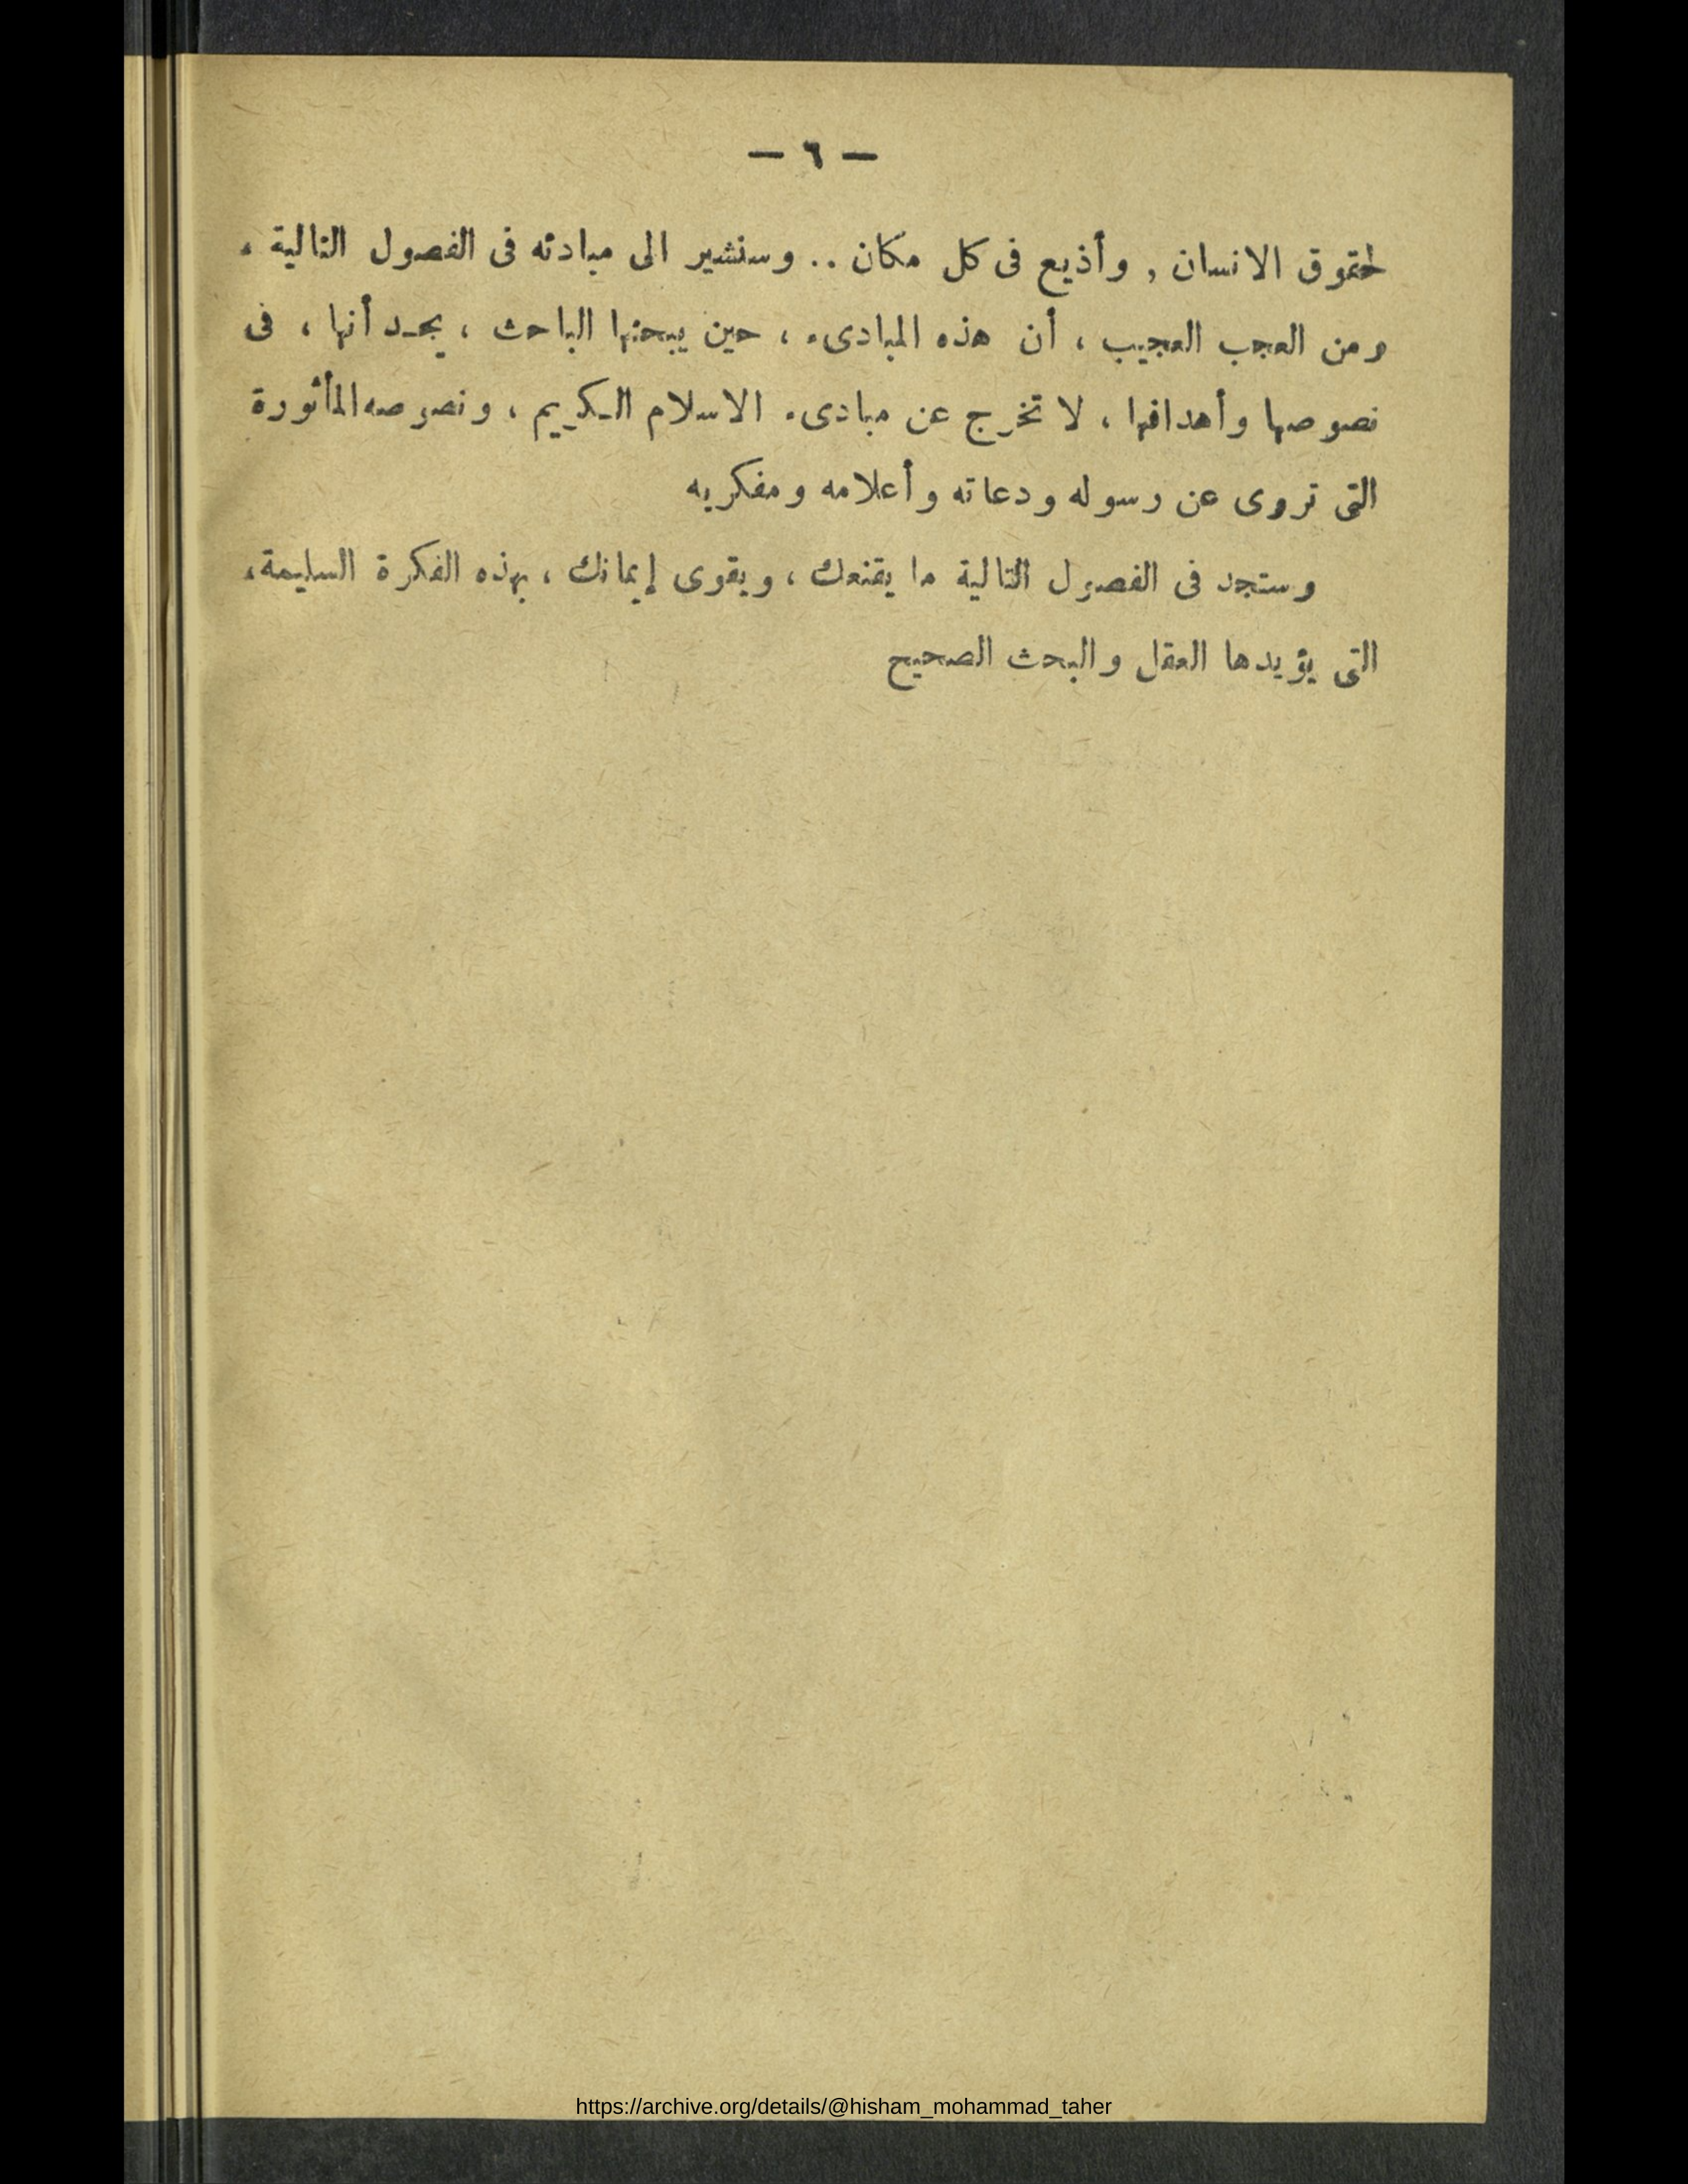 — ٦ —
لحقوق الانسان , وأذيع فى كل مكان .. وسنشير الى مبادئه فى الفصول التالية ،
ومن العجب العجيب ، أن هذه المبادىء ، حين يبحثها الباحث ، يجد أنها ، فى
نصوصها وأهدافها ، لا تخرج عن مبادىء الاسلام الكريم ، ونصوصه المأثورة
التى تروى عن رسوله ودعاته وأعلامه ومفكريه
وستجد فى الفصول التالية ما يقنعك ، ويقوى إيمانك ، بهذه الفكرة السليمة،
التى يؤيدها العقل والبحث الصحيح
https://archive.org/details/@hisham_mohammad_taher